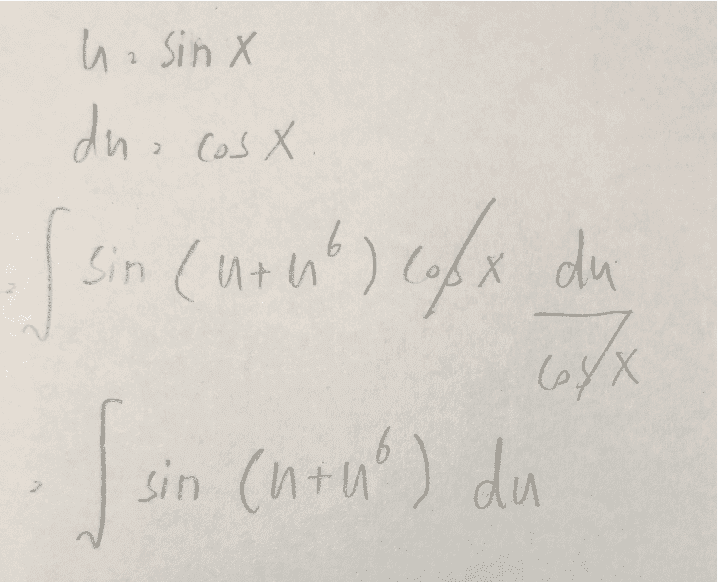 u = sin x
du = cos x
= ∫ sin (u+u⁶) cos x du/cos x
= ∫ sin (u+u⁶) du